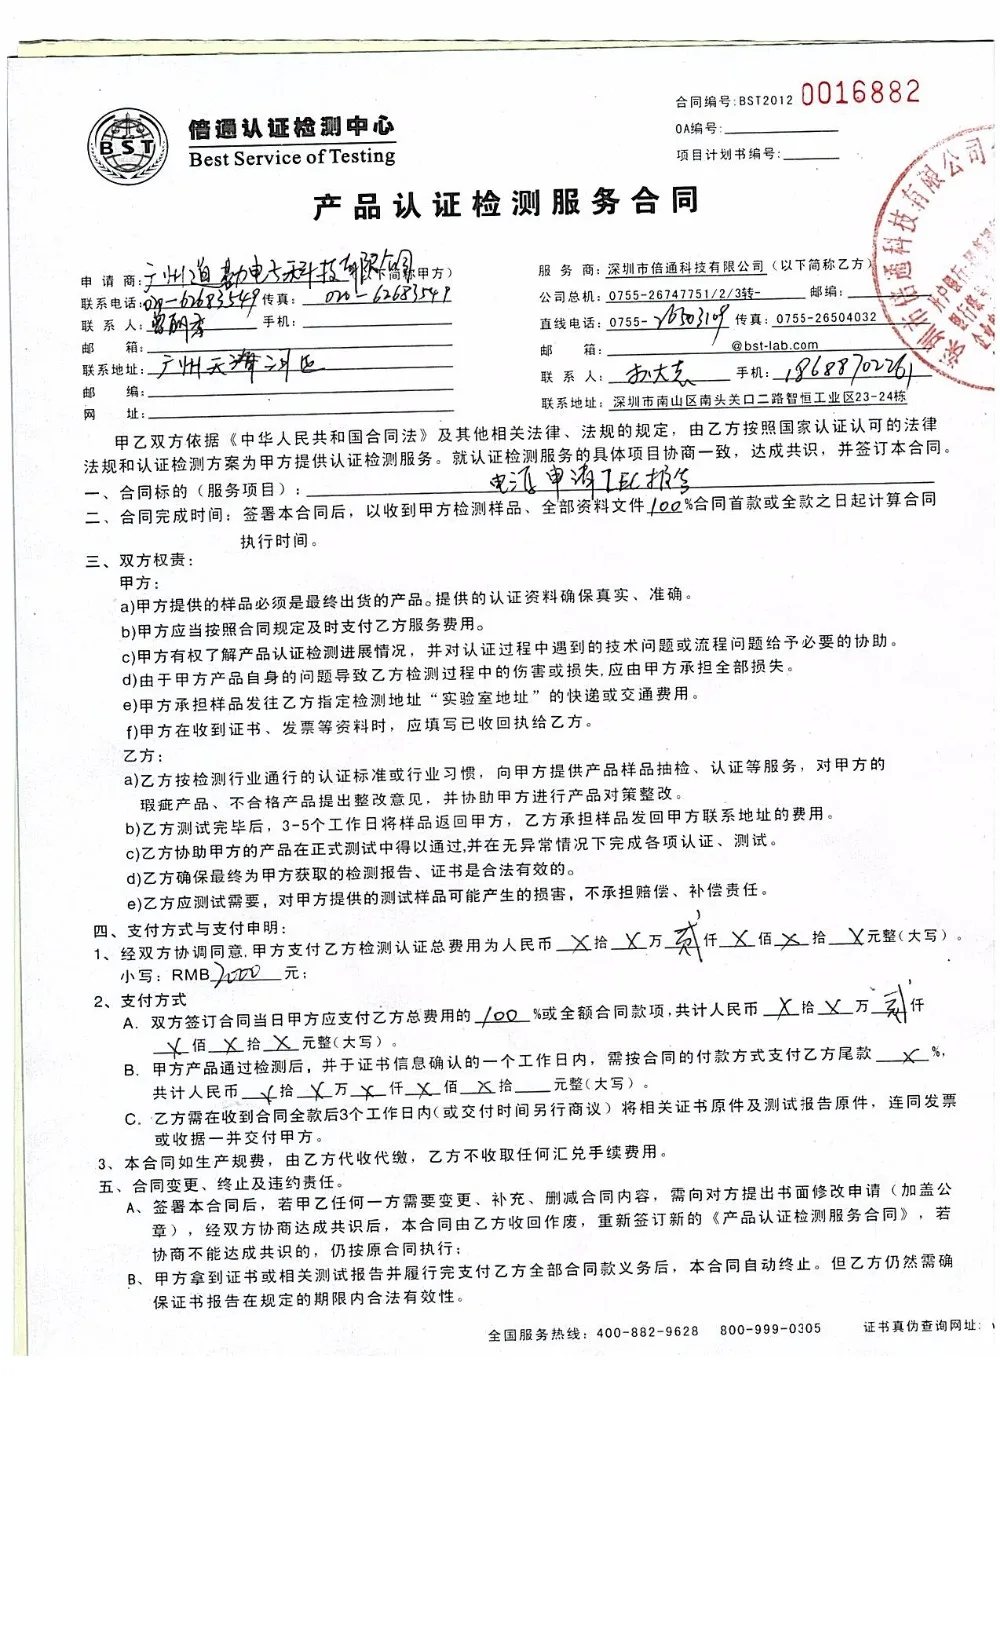 合同编号:BST2012 0016882
倍通认证检测中心
BST
Best Service of Testing
OA编号:
项目计划书编号:
产品认证检测服务合同
申请商:广州道 电子科技有限公司(以下简称甲方)
服务商:深圳市倍通科技有限公司(以下简称乙方)
联系电话:020-62683549 传真: 020-62683549
公司总机:0755-26747751/2/3转- 邮编:
联系人: 手机:
直线电话:0755-26503109 传真:0755-26504032
邮箱:
邮箱: @bst-lab.com
联系地址:广州天河区
联系人: 手机:18688702261
邮编:
联系地址:深圳市南山区南头关口二路智恒工业区23-24栋
网址:
甲乙双方依据《中华人民共和国合同法》及其他相关法律、法规的规定,由乙方按照国家认证认可的法律
法规和认证检测方案为甲方提供认证检测服务。就认证检测服务的具体项目协商一致,达成共识,并签订本合同。
一、合同标的(服务项目): 电源申请IEC报告
二、合同完成时间:签署本合同后,以收到甲方检测样品、全部资料文件100%合同首款或全款之日起计算合同
执行时间。
三、双方权责:
甲方:
a)甲方提供的样品必须是最终出货的产品。提供的认证资料确保真实、准确。
b)甲方应当按照合同规定及时支付乙方服务费用。
c)甲方有权了解产品认证检测进展情况,并对认证过程中遇到的技术问题或流程问题给予必要的协助。
d)由于甲方产品自身的问题导致乙方检测过程中的伤害或损失,应由甲方承担全部损失。
e)甲方承担样品发往乙方指定检测地址“实验室地址”的快递或交通费用。
f)甲方在收到证书、发票等资料时,应填写已收回执给乙方。
乙方:
a)乙方按检测行业通行的认证标准或行业习惯,向甲方提供产品样品抽检、认证等服务,对甲方的
瑕疵产品、不合格产品提出整改意见,并协助甲方进行产品对策整改。
b)乙方测试完毕后,3-5个工作日将样品返回甲方,乙方承担样品发回甲方联系地址的费用。
c)乙方协助甲方的产品在正式测试中得以通过,并在无异常情况下完成各项认证、测试。
d)乙方确保最终为甲方获取的检测报告、证书是合法有效的。
e)乙方应测试需要,对甲方提供的测试样品可能产生的损害,不承担赔偿、补偿责任。
四、支付方式与支付申明:
1、经双方协调同意,甲方支付乙方检测认证总费用为人民币 X 拾 X 万 贰 仟 X 佰 X 拾 X 元整(大写)。
小写:RMB 2000 元;
2、支付方式
A. 双方签订合同当日甲方应支付乙方总费用的 100 %或全额合同款项,共计人民币 X 拾 X 万 贰 仟
X 佰 X 拾 X 元整(大写)。
B. 甲方产品通过检测后,并于证书信息确认的一个工作日内,需按合同的付款方式支付乙方尾款 X %,
共计人民币 X 拾 X 万 X 仟 X 佰 X 拾 元整(大写)。
C. 乙方需在收到合同全款后3个工作日内(或交付时间另行商议)将相关证书原件及测试报告原件,连同发票
或收据一并交付甲方。
3、本合同如生产规费,由乙方代收代缴,乙方不收取任何汇兑手续费用。
五、合同变更、终止及违约责任。
A、签署本合同后,若甲乙任何一方需要变更、补充、删减合同内容,需向对方提出书面修改申请(加盖公
章),经双方协商达成共识后,本合同由乙方收回作废,重新签订新的《产品认证检测服务合同》,若
协商不能达成共识的,仍按原合同执行;
B、甲方拿到证书或相关测试报告并履行完支付乙方全部合同款义务后,本合同自动终止。但乙方仍然需确
保证书报告在规定的期限内合法有效性。
全国服务热线:400-882-9628 800-999-0305 证书真伪查询网址:
深圳市倍通科技有限公司